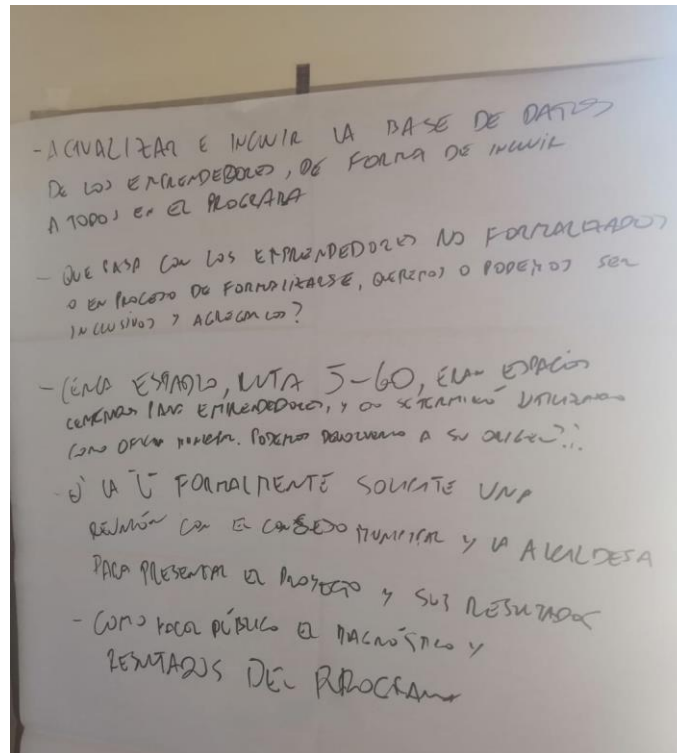 - ACTUALIZAR E INCLUIR LA BASE DE DATOS
DE LOS EMPRENDEDORES, DE FORMA DE INCLUIR
A TODOS EN EL PROGRAMA
- QUE PASA CON LOS EMPRENDEDORES NO FORMALIZADOS
O EN PROCESO DE FORMALIZARSE, QUEREMOS O PODEMOS SER
INCLUSIVOS Y AGREGARLOS?
- ESPACIO, RUTA 5-60, ERAN ESPACIOS
PARA EMPRENDEDORES, Y SE TERMINÓ UTILIZANDO
COMO OFICINA. PODEMOS DEVOLVERLO A SU ORIGEN?
- LA U FORMALMENTE SOLICITE UNA
REUNIÓN CON EL CONSEJO MUNICIPAL Y LA ALCALDESA
PARA PRESENTAR EL PROYECTO Y SUS RESULTADOS
- COMO HACER PÚBLICO EL DIAGNÓSTICO Y
RESULTADOS DEL PROGRAMA